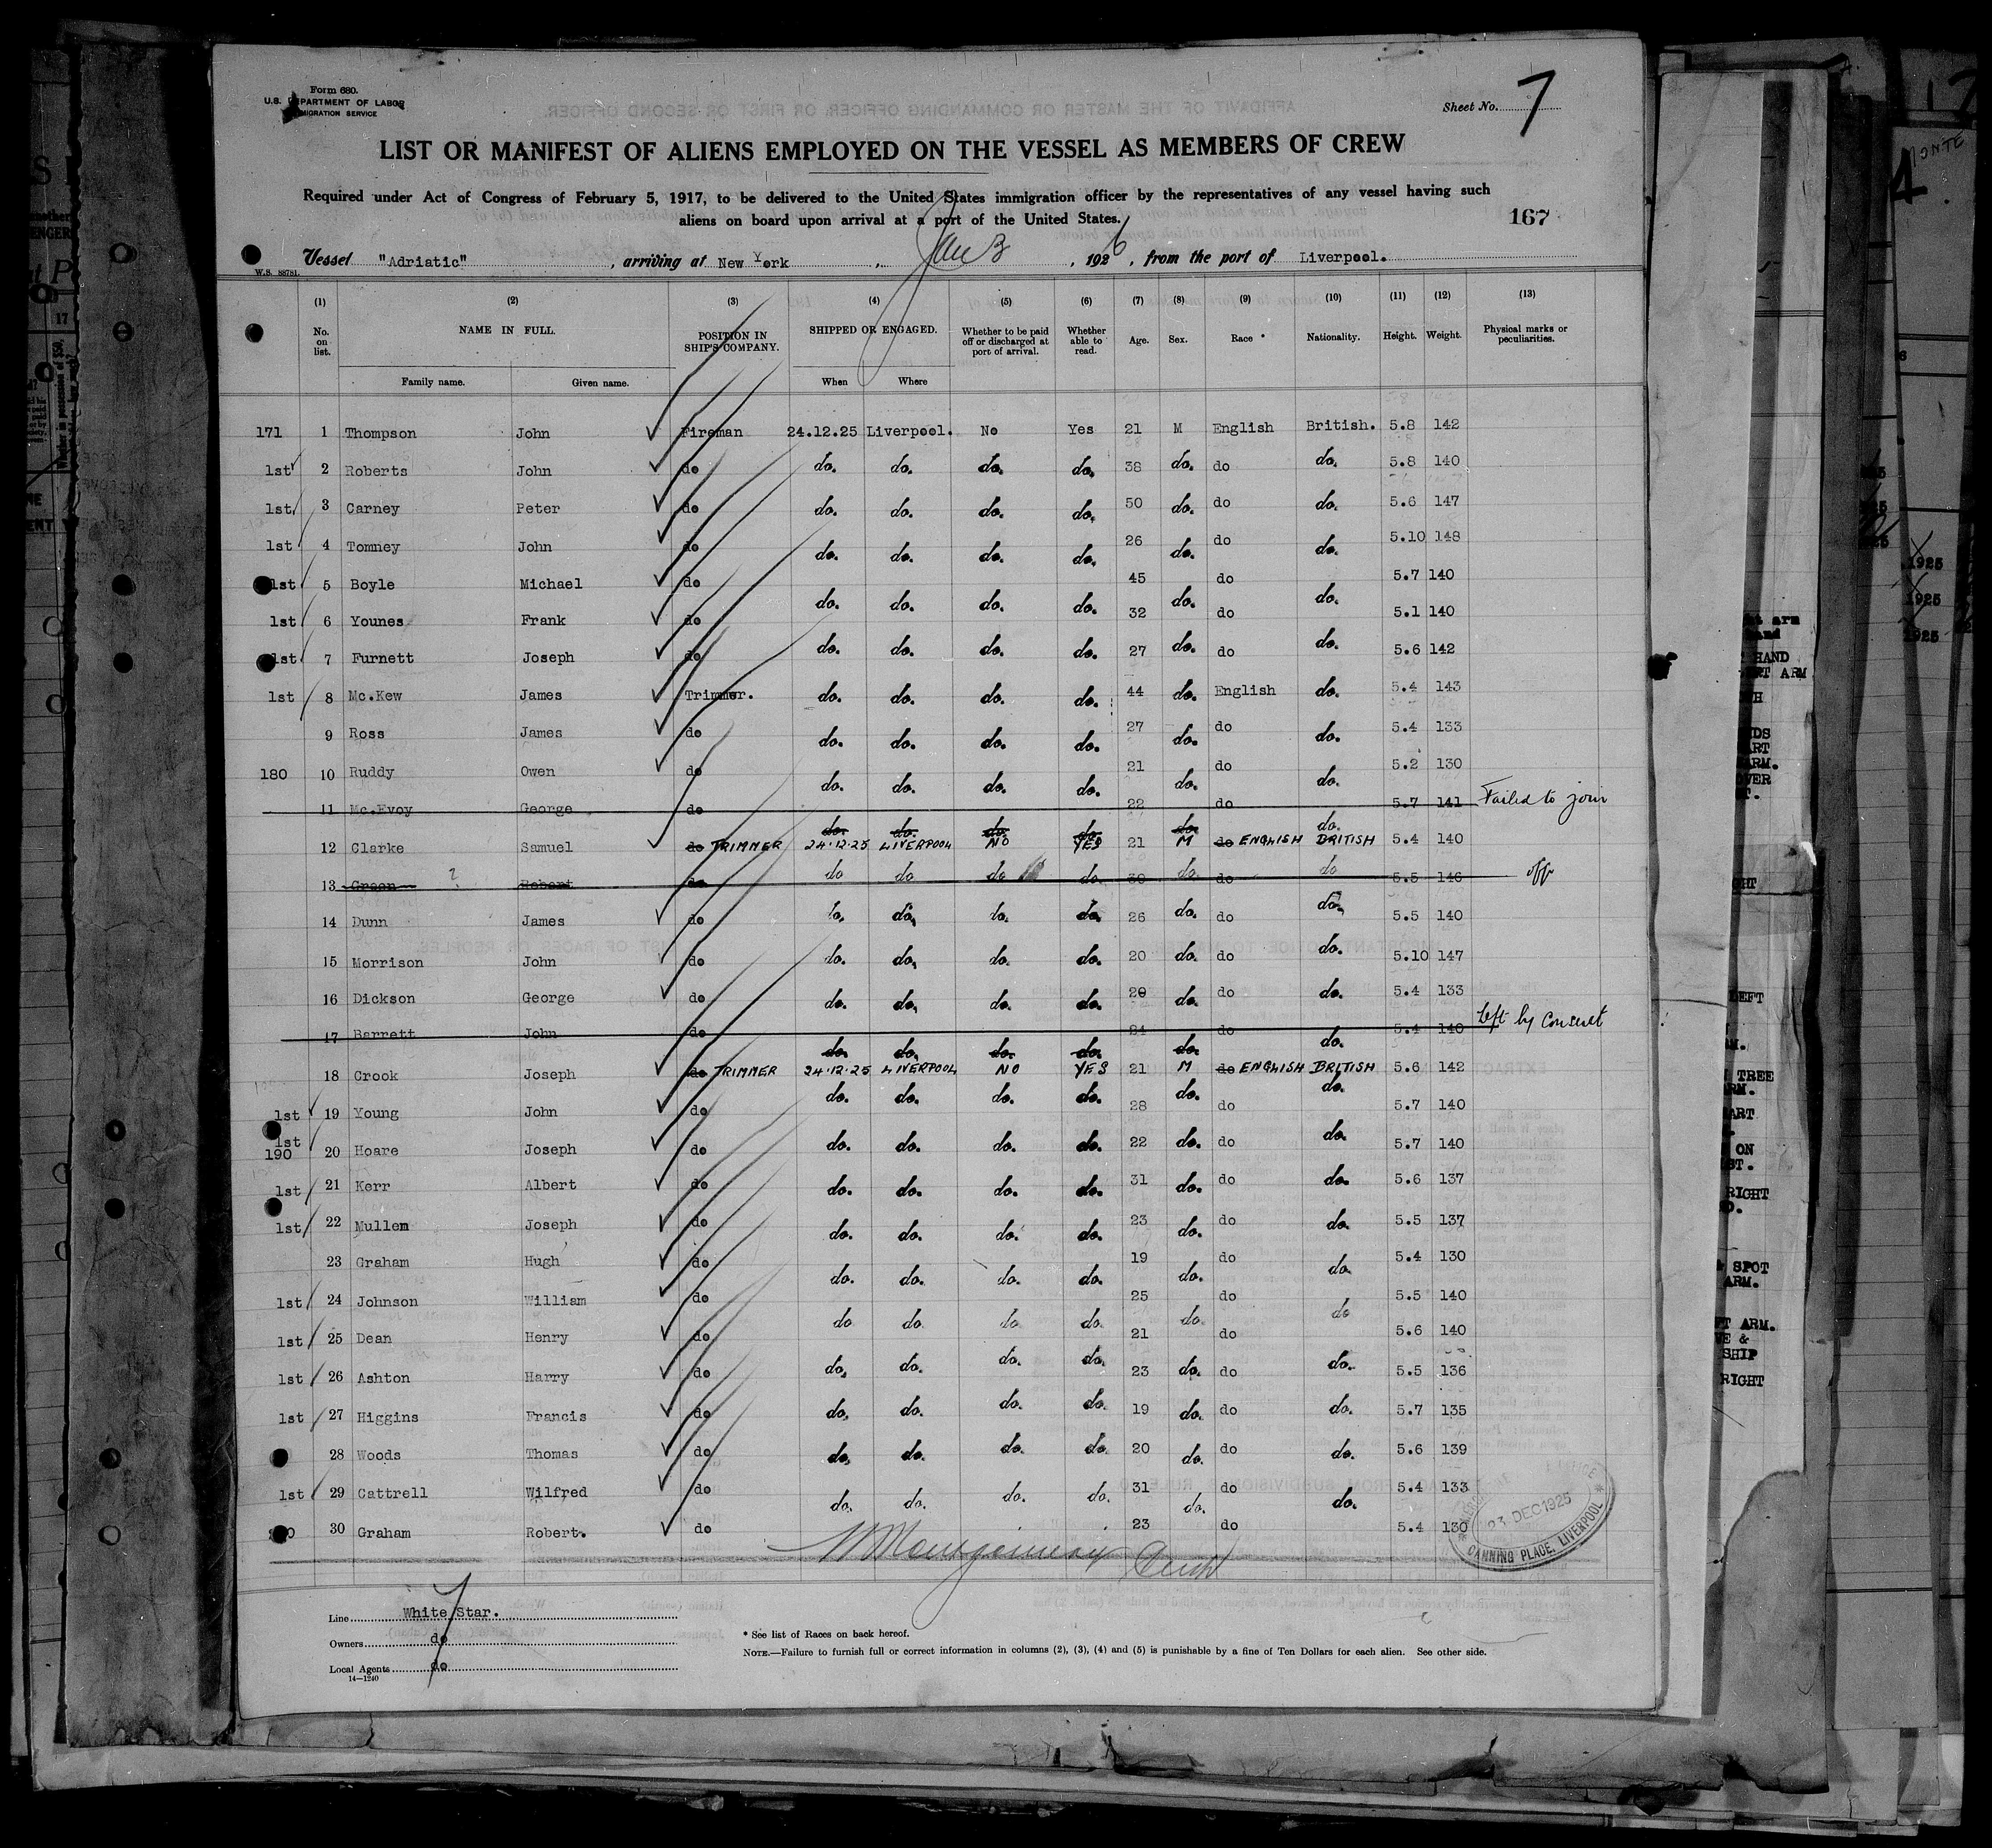 Form 680.
U.S. DEPARTMENT OF LABOR
IMMIGRATION SERVICE
Sheet No. 7
LIST OR MANIFEST OF ALIENS EMPLOYED ON THE VESSEL AS MEMBERS OF CREW
Required under Act of Congress of February 5, 1917, to be delivered to the United States immigration officer by the representatives of any vessel having such
aliens on board upon arrival at a port of the United States.
167
W.S. 88781.
Vessel "Adriatic", arriving at New York, Jan 3, 1926, from the port of Liverpool.
(1) (2) (3) (4) (5) (6) (7) (8) (9) (10) (11) (12) (13)
No. on list. NAME IN FULL. POSITION IN SHIP'S COMPANY. SHIPPED OR ENGAGED. Whether to be paid off or discharged at port of arrival. Whether able to read. Age. Sex. Race * Nationality. Height. Weight. Physical marks or peculiarities.
Family name. Given name. When Where
171 1 Thompson John Fireman 24.12.25 Liverpool. No Yes 21 M English British. 5.8 142
1st 2 Roberts John do do. do. do. do. 38 do. do do. 5.8 140
1st 3 Carney Peter do do. do. do. do. 50 do. do do. 5.6 147
1st 4 Tomney John do do. do. do. do. 26 do. do do. 5.10 148
1st 5 Boyle Michael do do. do. do. do. 45 do. do do. 5.7 140
1st 6 Younes Frank do do. do. do. do. 32 do. do do. 5.1 140
1st 7 Furnett Joseph do do. do. do. do. 27 do. do do. 5.6 142
1st 8 Mc.Kew James Trimmer. do. do. do. do. 44 do. English do. 5.4 143
9 Ross James do do. do. do. do. 27 do. do do. 5.4 133
180 10 Ruddy Owen do do. do. do. do. 21 do. do do. 5.2 130
11 Mc.Evoy George do do. do. do. do. 22 do. do do. 5.7 141 Failed to join
12 Clarke Samuel do TRIMMER 24.12.25 LIVERPOOL NO YES 21 M do ENGLISH BRITISH 5.4 140
13 Green ? Robert do do do do do 30 do do do 5.5 146 off
14 Dunn James do do. do. do. do. 26 do. do do. 5.5 140
15 Morrison John do do. do. do. do. 20 do. do do. 5.10 147
16 Dickson George do do. do. do. do. 20 do. do do. 5.4 133
17 Barrett John do do. do. do. do. 24 do. do do. 5.4 140 Left by Consent
18 Crook Joseph do TRIMMER 24.12.25 LIVERPOOL NO YES 21 M do ENGLISH BRITISH 5.6 142
1st 19 Young John do do. do. do. do. 28 do. do do. 5.7 140
1st 190 20 Hoare Joseph do do. do. do. do. 22 do. do do. 5.7 140
1st 21 Kerr Albert do do. do. do. do. 31 do. do do. 5.6 137
1st 22 Mullen Joseph do do. do. do. do. 23 do. do do. 5.5 137
23 Graham Hugh do do. do. do. do. 19 do. do do. 5.4 130
1st 24 Johnson William do do do do do 25 do do do 5.5 140
1st 25 Dean Henry do do. do. do. do. 21 do. do do. 5.6 140
1st 26 Ashton Harry do do. do. do. do. 23 do. do do. 5.5 136
1st 27 Higgins Francis do do. do. do. do. 19 do. do do. 5.7 135
28 Woods Thomas do do. do. do. do. 20 do. do do. 5.6 139
1st 29 Cattrell Wilfred do do. do. do. do. 31 do. do do. 5.4 133
30 Graham Robert. do 23 do 5.4 130
23 DEC 1925
CANNING PLACE, LIVERPOOL
W Montgomery
Line White Star.
Owners do
Local Agents do
14—1240
7
* See list of Races on back hereof.
NOTE.—Failure to furnish full or correct information in columns (2), (3), (4) and (5) is punishable by a fine of Ten Dollars for each alien. See other side.